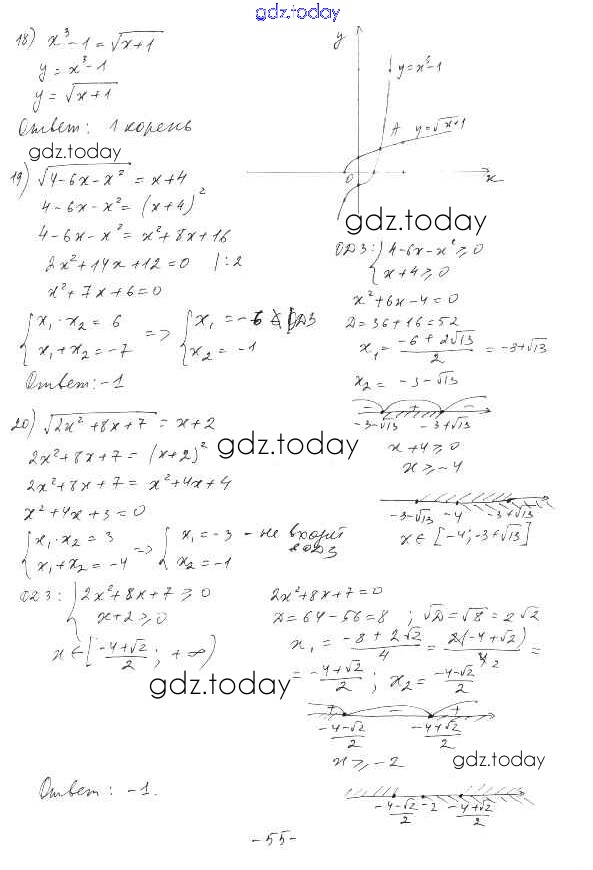 gdz.today
18) x³-1=√(x+1)
y = x³-1
y = √(x+1)
Ответ: 1 корень
y
y=x³-1
A
y=√(x+1)
0
x
gdz.today
19) √(4-6x-x²) = x+4
4-6x-x² = (x+4)²
4-6x-x² = x²+8x+16
2x²+14x+12=0 |:2
x²+7x+6=0
{ x₁·x₂ = 6 => { x₁ = -6 ∉ ОДЗ
{ x₁+x₂ = -7 { x₂ = -1
Ответ: -1
gdz.today
ОДЗ: { 4-6x-x² ≥ 0
{ x+4 ≥ 0
x²+6x-4=0
D=36+16=52
x₁ = (-6+2√13)/2 = -3+√13
x₂ = -3-√13
- + -
-3-√13 -3+√13
x+4 ≥ 0
x ≥ -4
-3-√13 -4 -3+√13
x ∈ [-4; -3+√13]
20) √(2x²+8x+7) = x+2
gdz.today
2x²+8x+7 = (x+2)²
2x²+8x+7 = x²+4x+4
x²+4x+3=0
{ x₁·x₂ = 3 => { x₁ = -3 - не входит в ОДЗ
{ x₁+x₂ = -4 { x₂ = -1
ОДЗ: { 2x²+8x+7 ≥ 0
{ x+2 ≥ 0
x ∈ [(-4+√2)/2; +∞)
gdz.today
2x²+8x+7=0
D=64-56=8 ; √D=√8=2√2
x₁ = (-8+2√2)/4 = 2(-4+√2)/4 2 =
= (-4+√2)/2 ; x₂ = (-4-√2)/2
+ - +
(-4-√2)/2 (-4+√2)/2
x ≥ -2
gdz.today
(-4-√2)/2 -2 (-4+√2)/2
Ответ: -1.
-55-